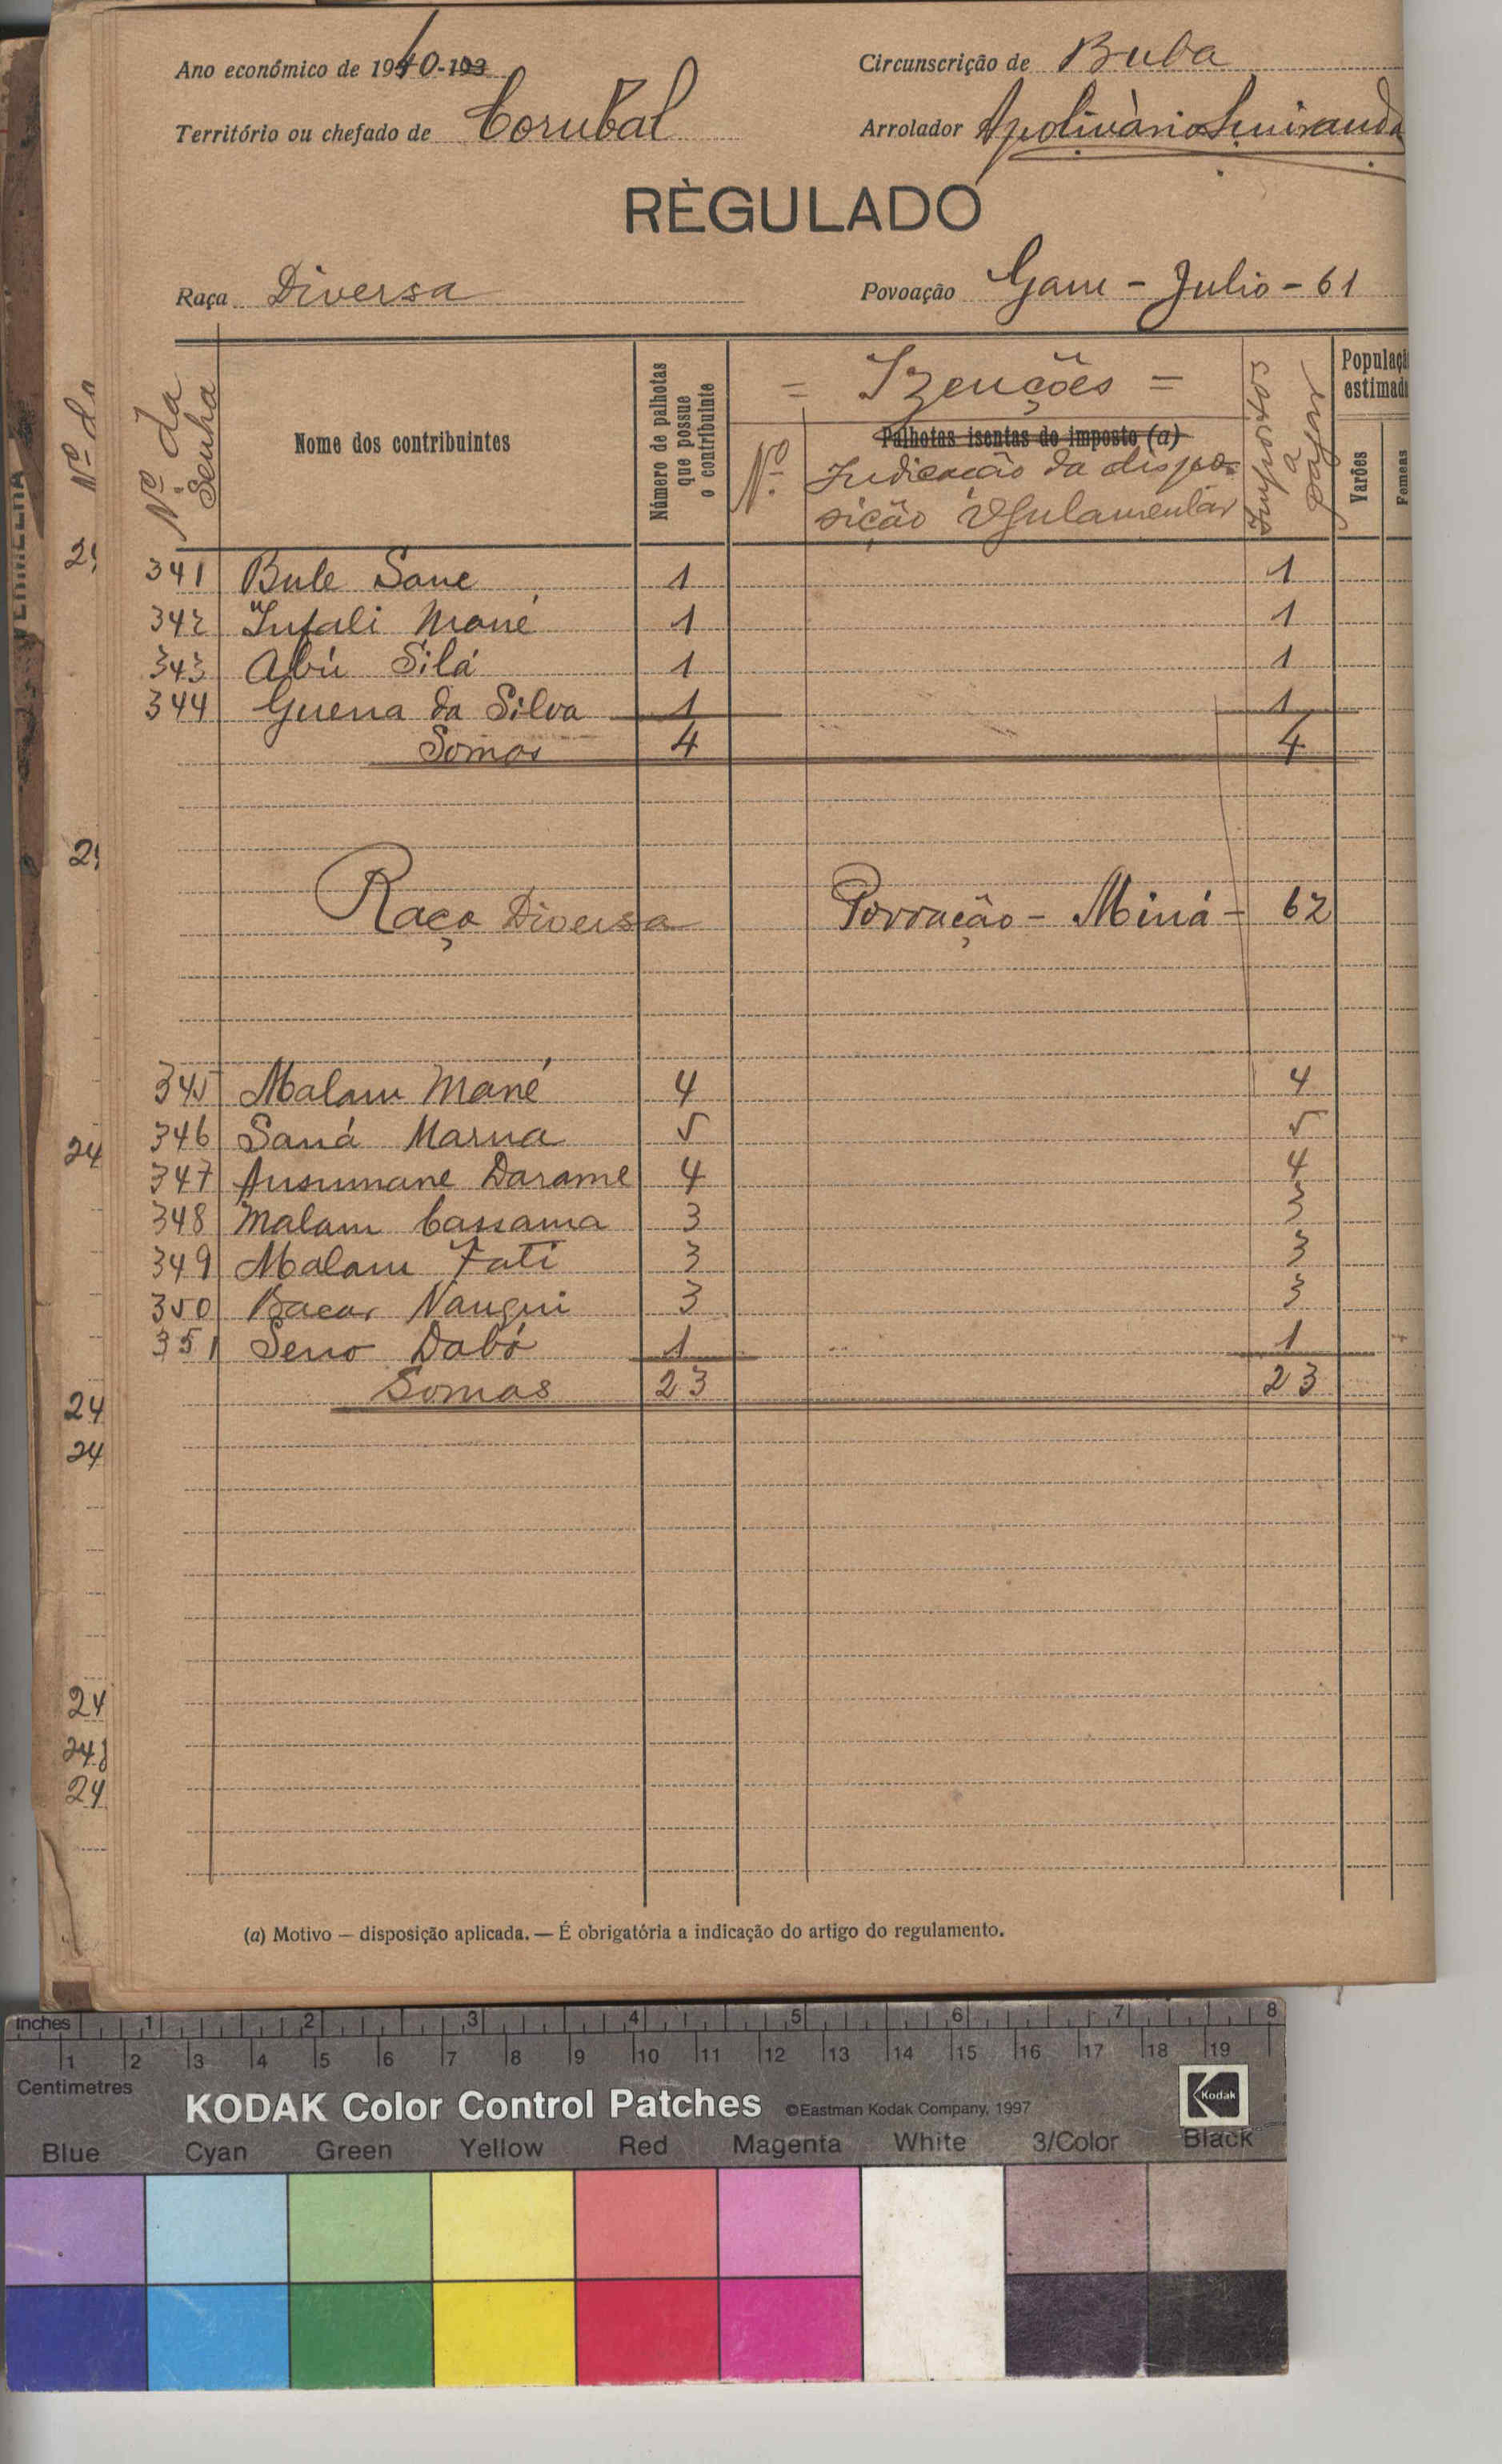 Ano económico de 1940-193
Circunscrição de Buba
Território ou chefado de Corubal
Arrolador Apolinàrio
RÈGULADO
Raça Diversa
Povoação Gam - Julio - 61
Nº da
Nº da Senha
Nome dos contribuintes
Número de palhotas que possue o contribuinte
= Izenções =
Palhotas isentas do imposto (a)
Nº
Indicação da dispo-
sição regulamentar
Impostos a pagar
Populaçã
estimada
Varões
Femeas
341 Bule Sane 1 1
342 Infali Mané 1 1
343 Abú Silá 1 1
344 Guerra da Silva 1 1
Somas 4 4
Raça Diversa Povoação - Miná - 62
345 Malam Mané 4 4
346 Saná Marna 5 5
347 Ansumane Darame 4 4
348 Malam Cassama 3 3
349 Malam Fati 3 3
350 Bacar Nangui 3 3
351 Seno Dabó 1 1
Somas 23 23
24
24
24
24
24
(a) Motivo — disposição aplicada. — É obrigatória a indicação do artigo do regulamento.
Inches 1 2 3 4 5 6 7 8
1 2 3 4 5 6 7 8 9 10 11 12 13 14 15 16 17 18 19
Centimetres
KODAK Color Control Patches ©Eastman Kodak Company, 1997 Kodak
Blue Cyan Green Yellow Red Magenta White 3/Color Black